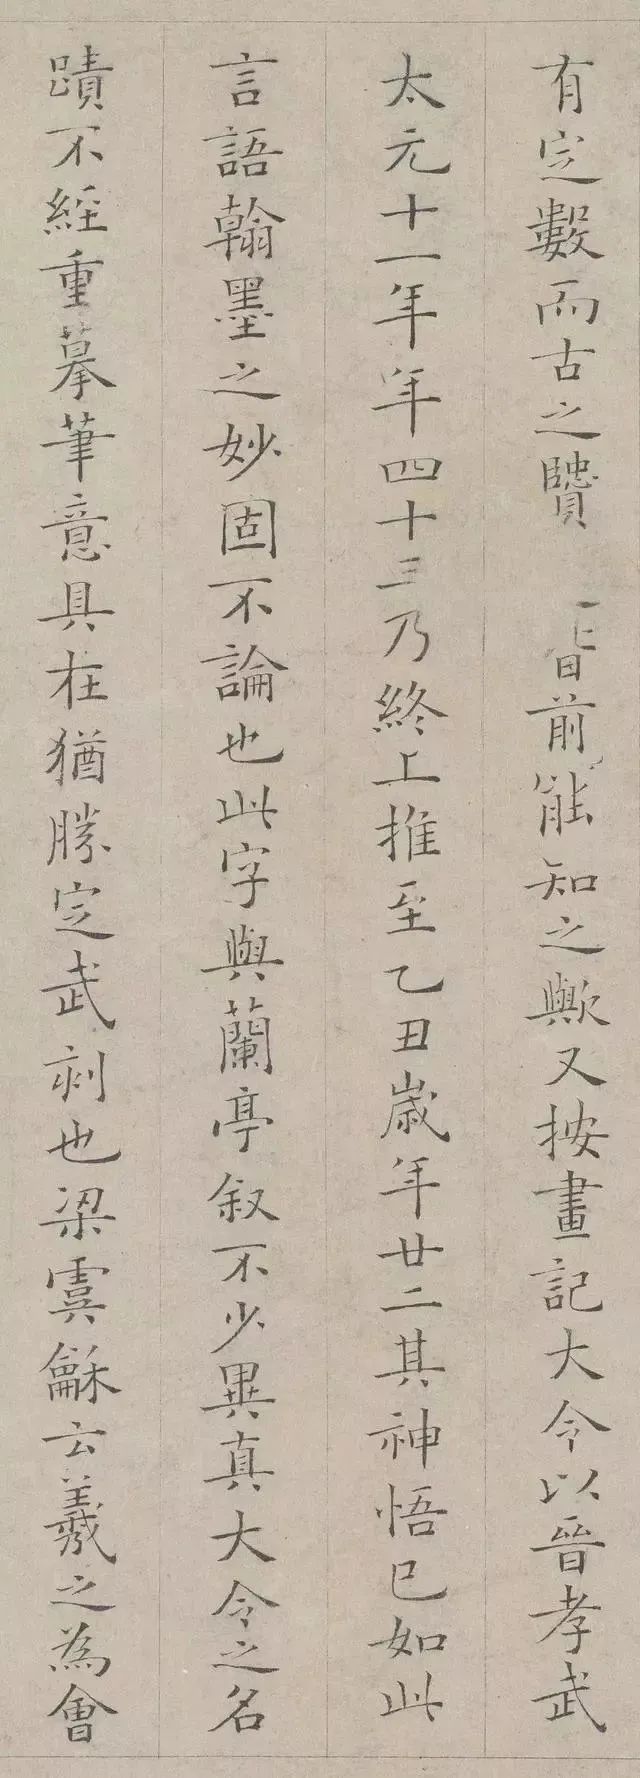 有定數而古之賢皆前能知之歟又按畫記大令以晉孝武
太元十一年年四十三乃終上推至乙丑歲年廿二其神悟已如此
言語翰墨之妙固不論也此字與蘭亭叙不少異真大令之名
蹟不經重摹筆意具在猶勝定武刻也梁虞龢云羲之為會